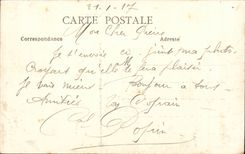 21-1-17
CARTE POSTALE
Mon Cher
Correspondance
Adresse
Je t'envoie ci-joint ma photo
Croyant qu'elle te fera plaisir
Je vais mieux Bonjour à tous
Amitiés